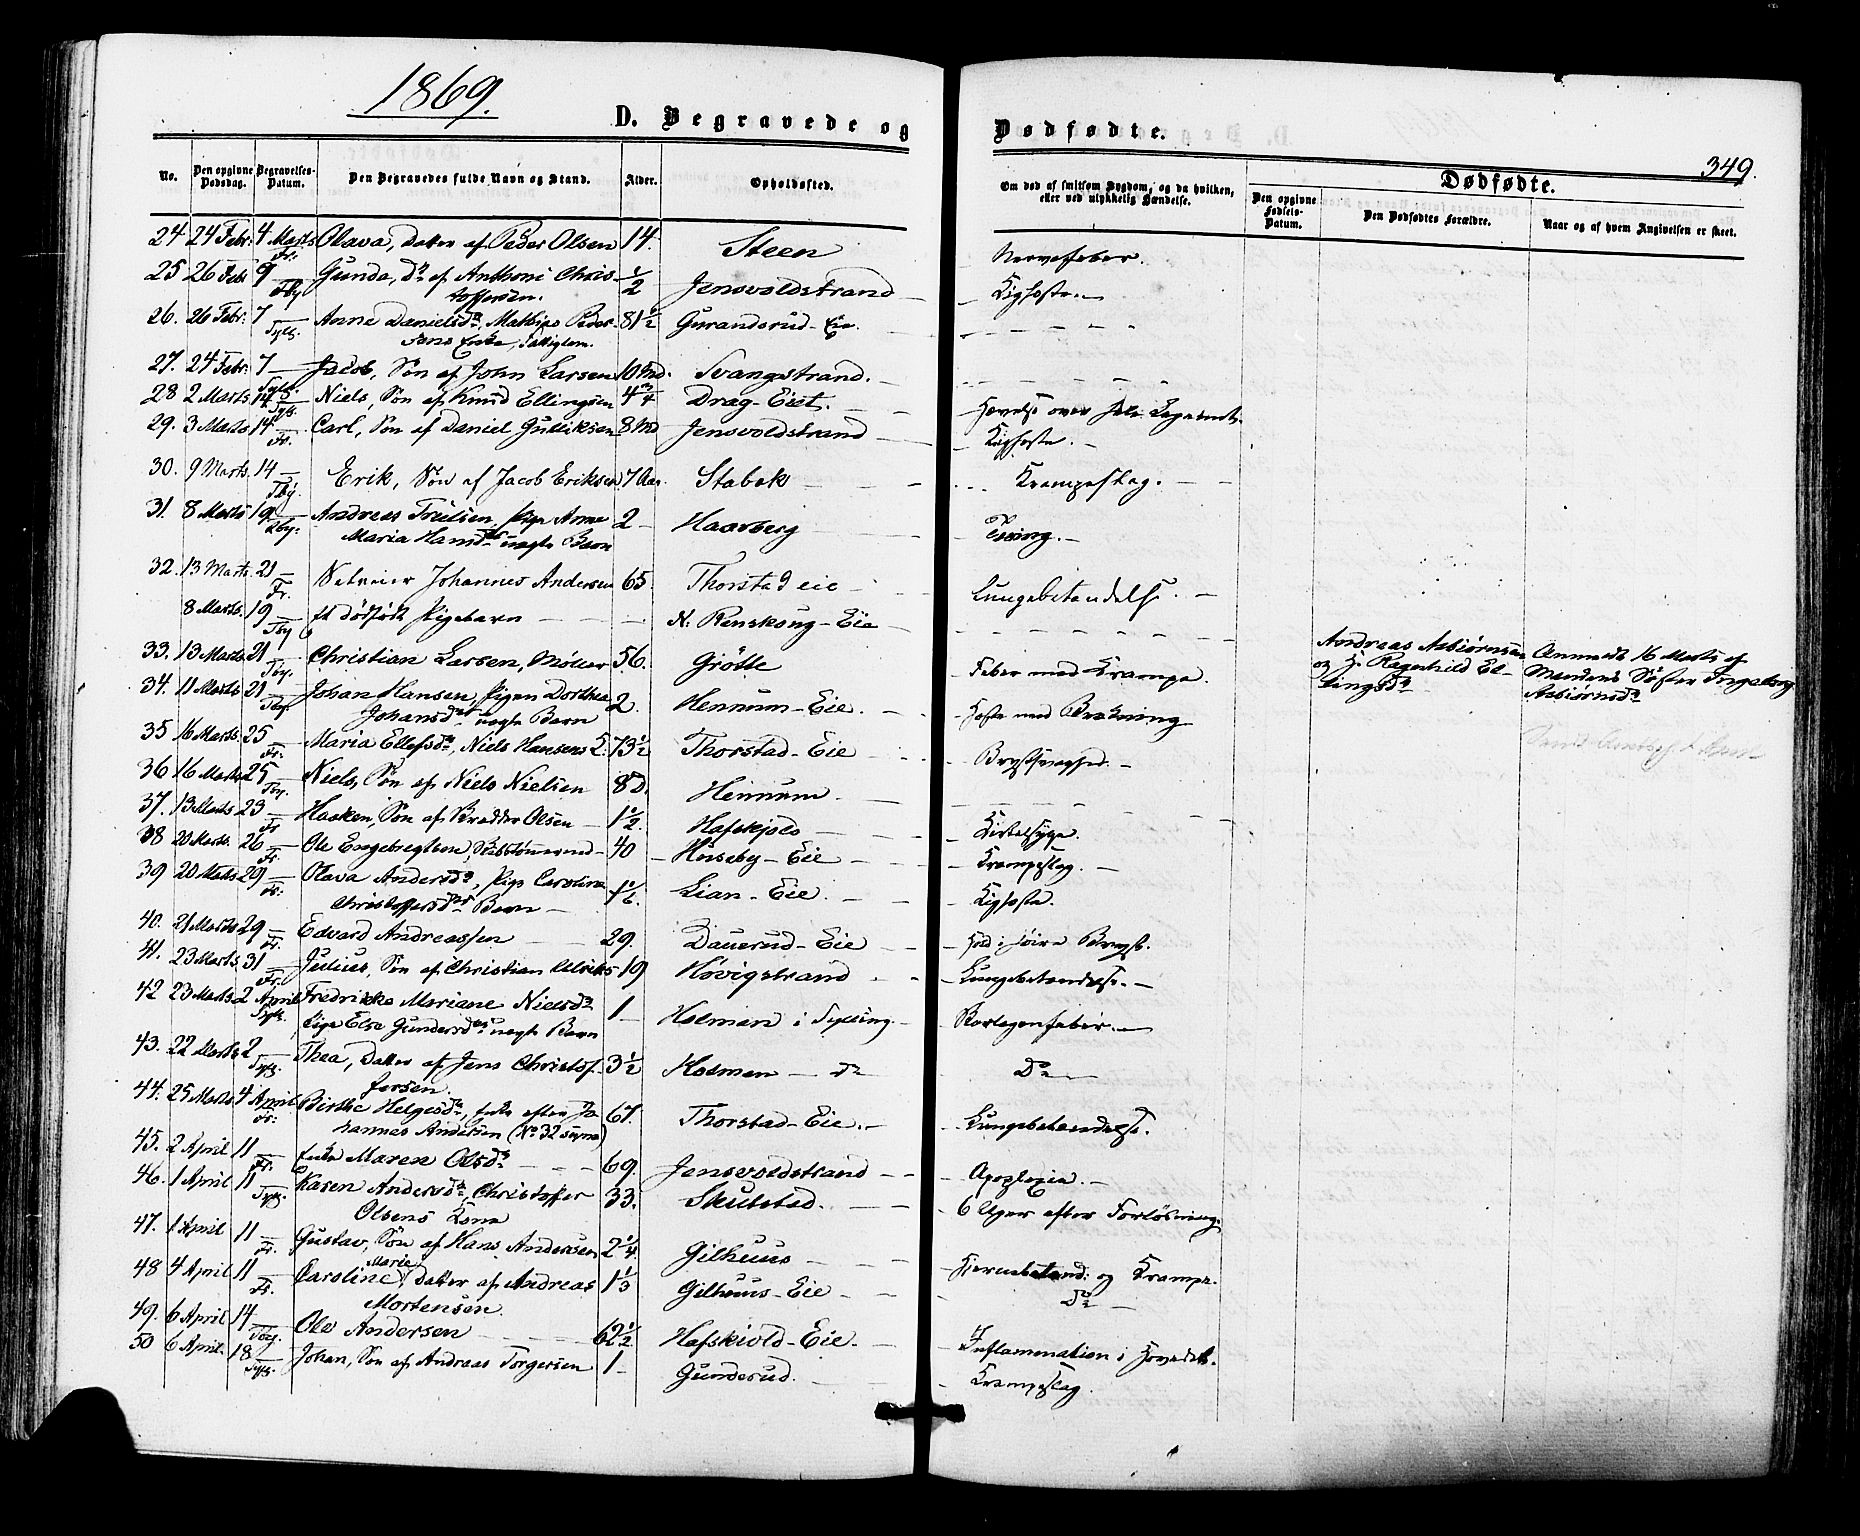 1869.
D. Begravede og Dødfødte.
349.
No. Den opgivne Dødsdag. Begravelses-Datum. Den Begravedes fulde Navn og Stand. Alder. Opholdssted. Om død af smitsom Sygdom, og da hvilken, eller ved ulykkelig Hændelse. Dødfødte.
Den opgivne Fødsels-Datum. Den Dødfødtes Forældre. Naar og af hvem Angivelsen er skeet.
24 24 Febr: 4 Marts Olava, Datter af Peder Olsen 14. Steen Nervefeber.
Fr:
25 26 Febr 9 — Gunda, Dr. af Anthoni Chris- 1/2 Jensvoldstrand — Kighoste. —
Tby toffersen.
26. 26 Febr: 7 — Anne Danielsdr, Mathias Peder- 81 1/2 Gurandsrud - Eie.
Tylg. sens Enke, Fattiglem.
27. 24 Febr: 7 — Jacob, Søn af John Larsen 10 Md. Svangstrand. —
Tylg.
28 2 Marts 14 — Niels, Søn af Knud Ellingsen 4 3/4 Drag - Eiet. — Hævelse over hele Legemet.
Tylg.
29. 3 Marts 14 — Carl, Søn af Daniel Gulliksen 8 Md Jensvoldstrand — Kighoste. —
Fr.
30. 9 Marts. 14 — Erik, Søn af Jacob Eriksen 7 Aar. Stabæk Krampeslag. —
Tby.
31. 8 Marts 19 — Andreas Trulsen, Pige Anne 2 — Haarberg Tæring. —
Tby. Maria Hansdrs uægte Barn
32. 13 Marts. 21 — Johannes Andersen 65. Thorstad eie — Lungebetændelse. —
Fr.
8 Marts. 19 — et dødfødt Pigebarn — — — N: Renskoug - Eie
Tby
Andreas Asbiørnsen Anmeldt 16 Marts af
og H. Ragnhild El- Mandens Søster Ingeborg
lingsdr Asbiørnsdr
33. 13 Marts 21 — Christian Larsen, Møller 56. Grøtte Feber med Krampe.
Tby.
34. 11 Marts 21 — Johan Hansen, Pigen Dorthea 2. Hennum - Eie. — Hoste med Brækning
Tby. Johansdrs uægte Barn
35 16 Marts. 25 — Maria Ellefsdr, Niels Hansens E: 73 1/2 Thorstad - Eie Brystsvaghed. —
Fr.
36 16 Marts 25 — Niels, Søn af Niels Nielsen 8 D. Hennum. —
Tby.
37. 13 Marts 23 — Haaken, Søn af Bredde Olsen — 1 1/2. Hafskjold — Kirtelsyge.
Fr
38 20 Marts. 26 — Ole Engebregtsen, — 40 — Horseby - Eie — Krampeslag. —
Fr.
39 20 Marts 29 — Olava Andersdr, Pige Caroline 1 1/6. Lian - Eie. — Kighoste.
Fr. Christoffersdrs Barn —
40. 21 Marts 29 — Edvard Andreassen 29. Dauerud - Eie — Hold i høire Bryst.
Fr.
41. 23 Marts. 31 — Julius, Søn af Christian Ulriks- 19 Høvigstrand Lungebetændelse. —
Fr.
42 23 Marts 2 April Fredrikke Mariane Nielsdr 1 — Holmen i Sylling. — Barlagenfeber. —
Tylg. Pige Else Gundersdrs uægte Barn
43. 22 Marts 2 — Thea, Datter af Jens Christof- 3 1/2 Holmen — do Do —
Tylg. fersen.
44. 25 Marts 4 April Birthe Helgesdr, Enke efter Jo- 67. Thorstad - Eie. — Lungebetændelse.
Fr: hannes Andersen (No 32 supra)
45. 2 April 11 — Enke Maren Olsdr — — 69. Jensvoldstrand — Apoplexia. —
Fr.
46. 1 April 11 — Karen Andersdr, Christoffer 33. Skulstad. 6 Uger efter Forløsning.
Tylg. Olsens Kone
47. 1 April 11 — Gustav, Søn af Hans Andersen 2 1/4. Gilhuus —
Fr.
48 4 April 11 — Caroline Marie, Datter af Andreas 1 1/3 Gilhuus - Eie — Hjernebetænd: og Krampe.
Fr. Mortensen. Do —
49. 6 April 14 — Ole Andersen 62 1/2. Hafskiold - Eie. — Inflammation i Hovedet.
Tby.
50 6 April. 18 — Johan, Søn af Andreas Torgersen 1 — Gunderud. Krampeslag.
Tylg.